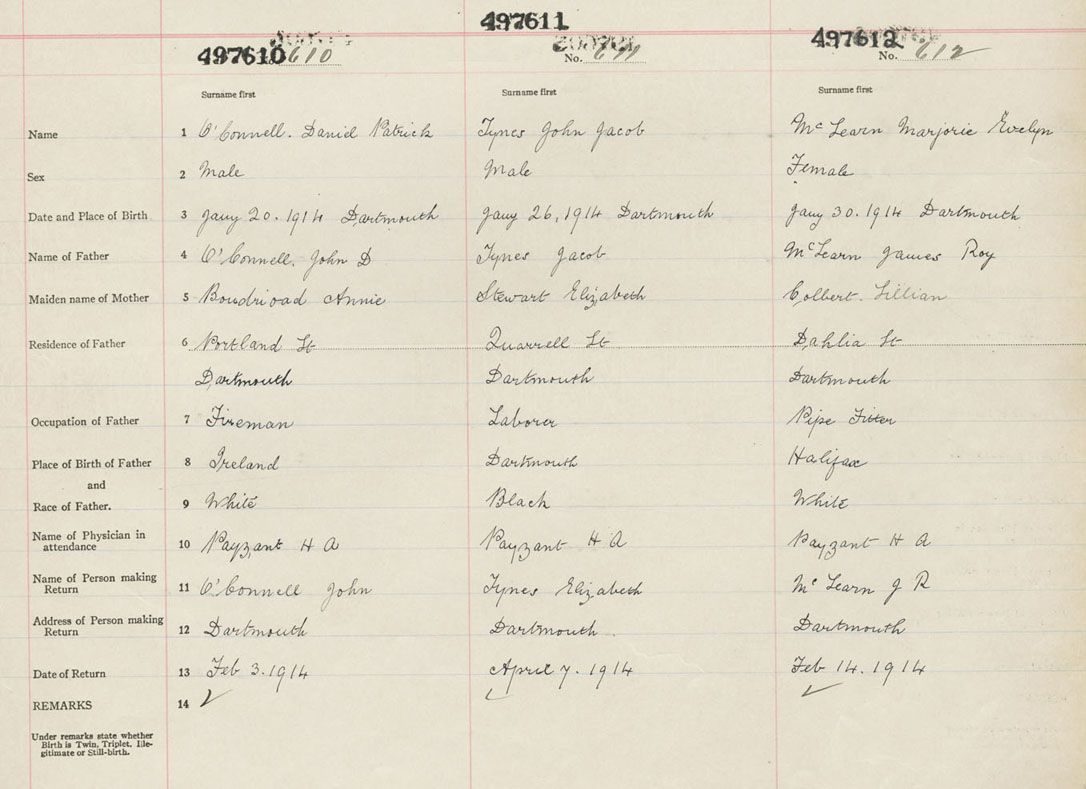 497610 497611 497612
No. 610 No. 611 No. 612
Surname first Surname first Surname first
Name 1 O'Connell. Daniel Patrick Tynes John Jacob McLearn Marjorie Evelyn
Sex 2 Male Male Female
Date and Place of Birth 3 Jany 20. 1914 Dartmouth Jany 26, 1914 Dartmouth Jany 30. 1914 Dartmouth
Name of Father 4 O'Connell. John D Tynes Jacob McLearn James Roy
Maiden name of Mother 5 Boudrioad Annie Stewart Elizabeth Colbert. Lillian
Residence of Father 6 Portland St Quarrell St Dahlia St
Dartmouth Dartmouth Dartmouth
Occupation of Father 7 Fireman Laborer Pipe Fitter
Place of Birth of Father 8 Ireland Dartmouth Halifax
and
Race of Father. 9 White Black White
Name of Physician in
attendance 10 Payzant H A Payzant H A Payzant H A
Name of Person making
Return 11 O'Connell John Tynes Elizabeth McLearn J R
Address of Person making
Return 12 Dartmouth Dartmouth. Dartmouth
Date of Return 13 Feb 3. 1914 April 7. 1914 Feb 14. 1914
REMARKS 14
Under remarks state whether
Birth is Twin, Triplet, Ille-
gitimate or Still-birth.